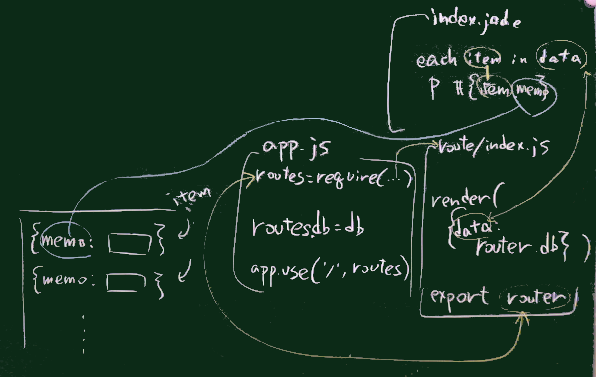 index.jade
each item in data
P #{item.memo}
app.js
routes=require(...)
routes.db=db
app.use('/', routes)
route/index.js
render(
{data:
router.db} )
export router
item
{memo: }
{memo: }